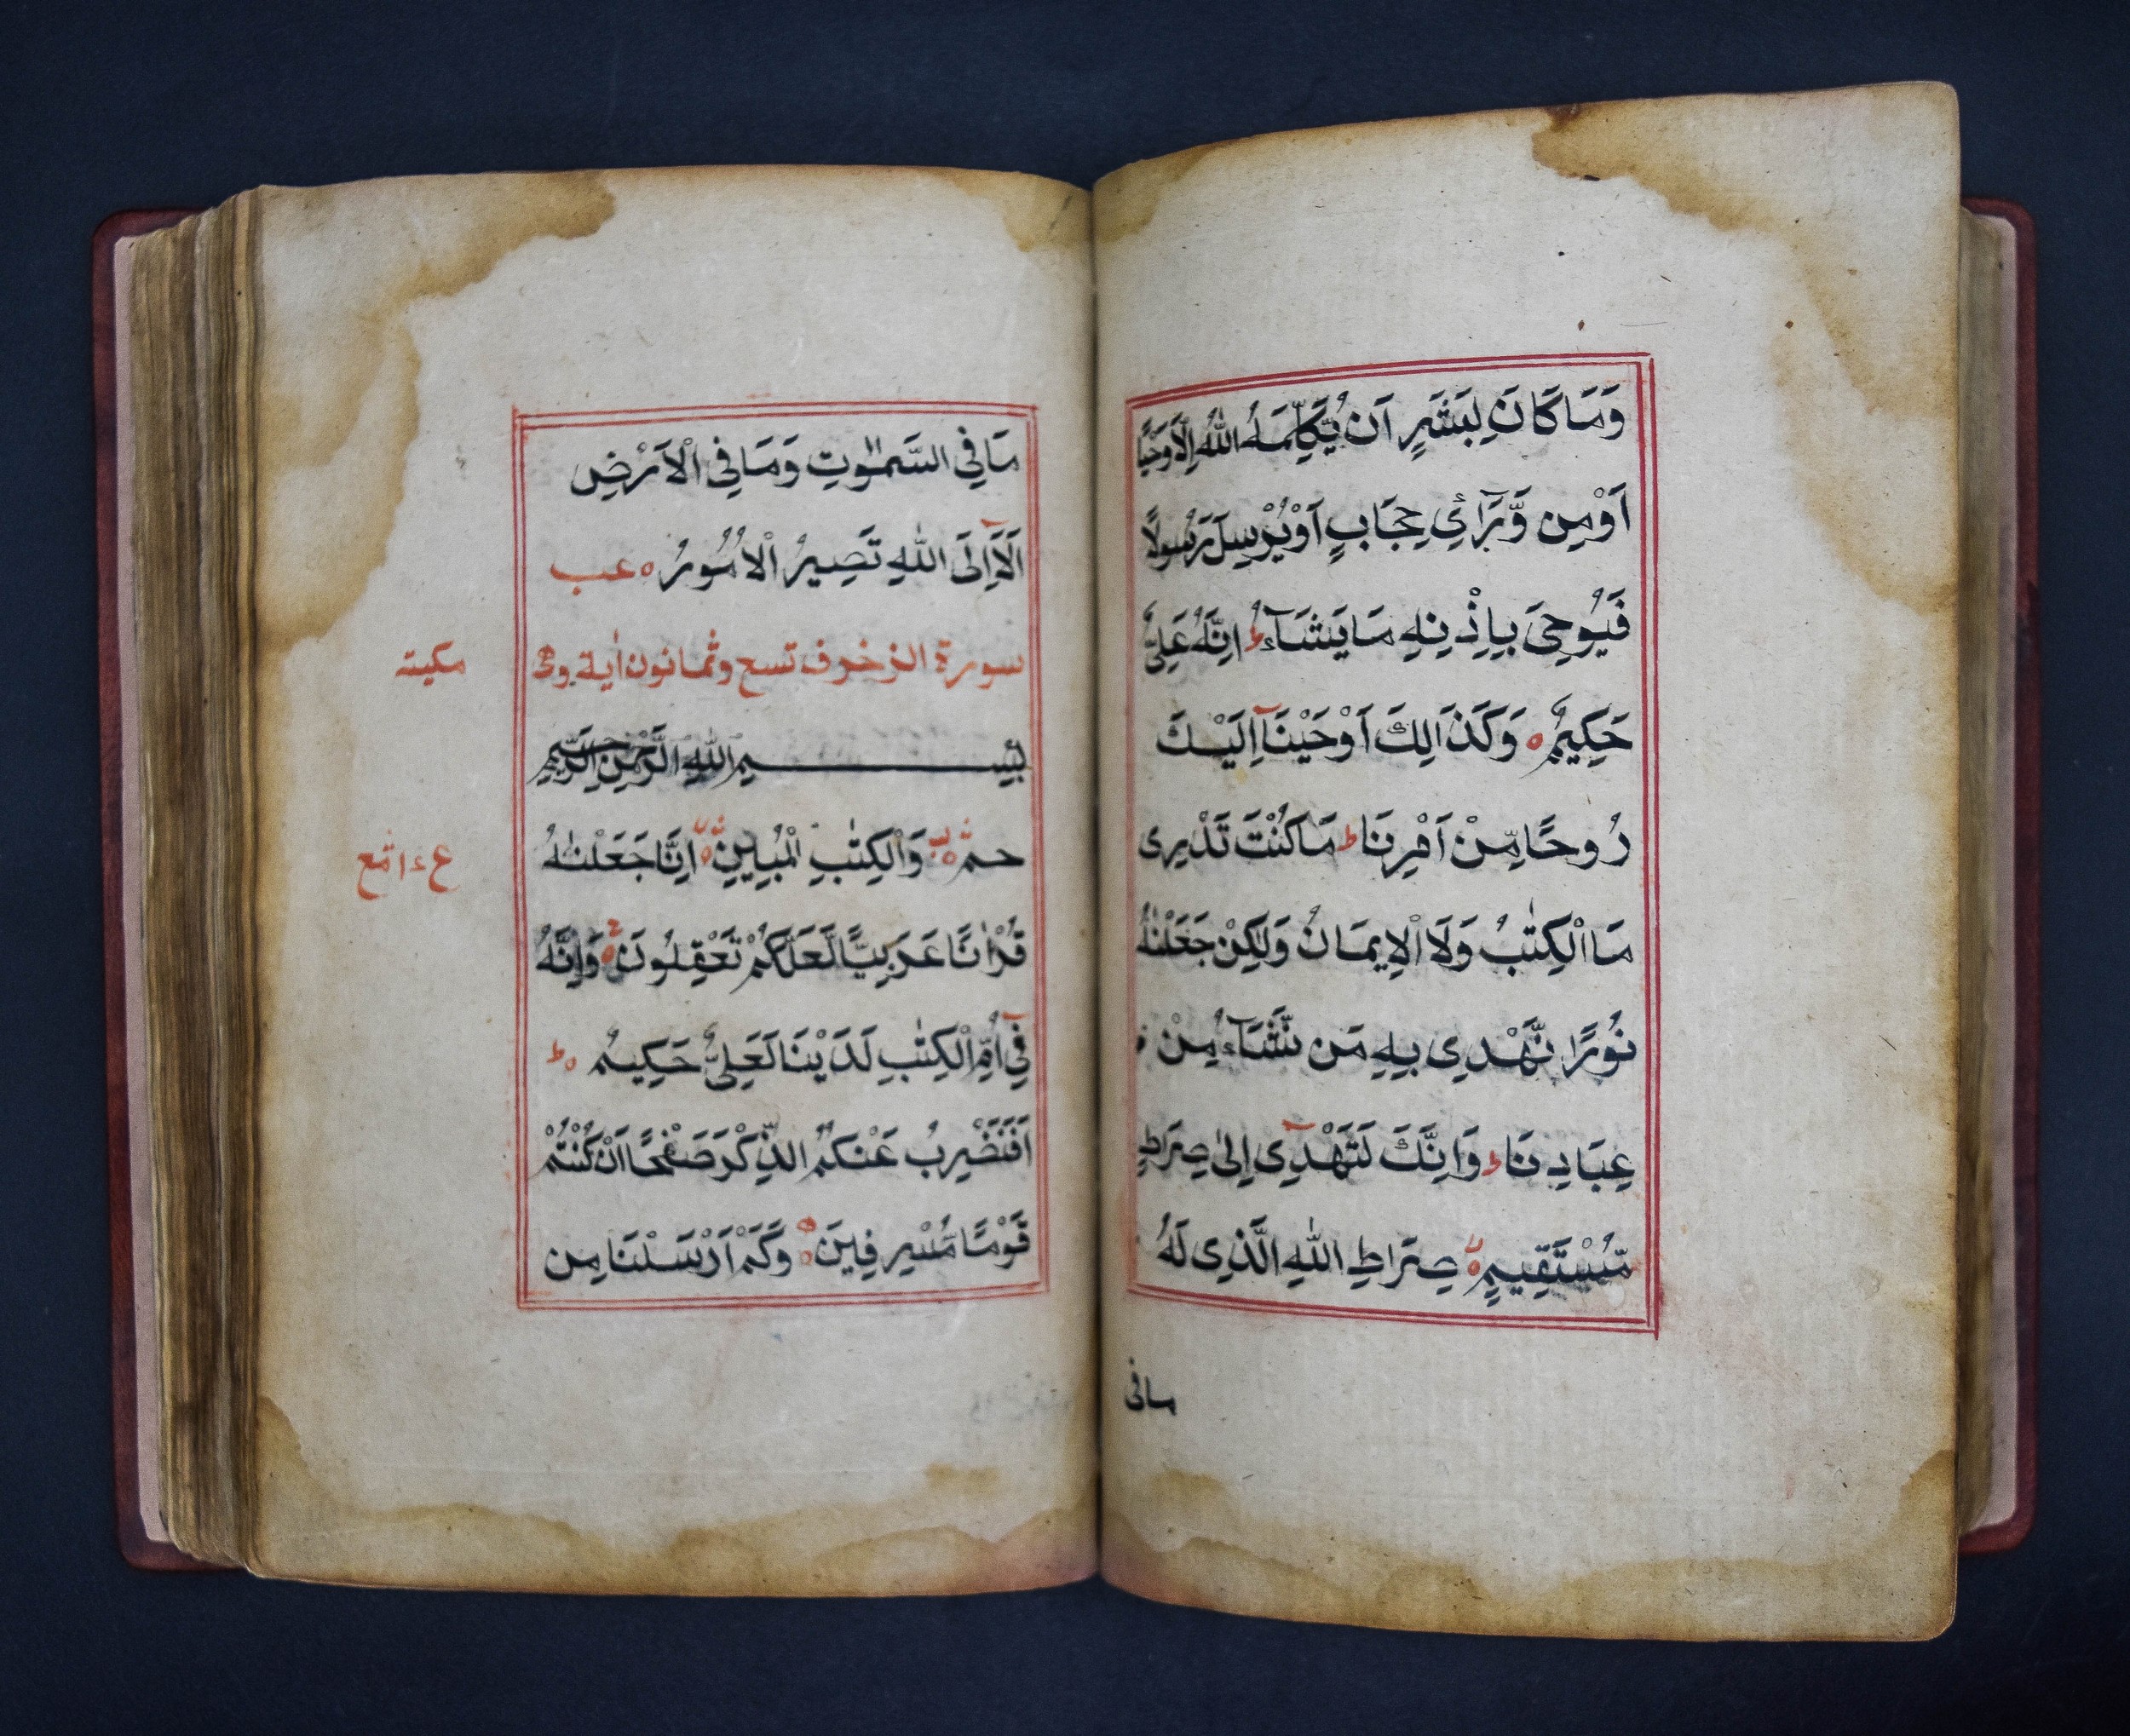 وَمَا كَانَ لِبَشَرٍ اَنْ يُّكَلِّمَهُ اللّٰهُ اِلَّا وَحْيًا
اَوْ مِنْ وَّرَآئِ حِجَابٍ اَوْ يُرْسِلَ رَسُوْلًا
فَيُوْحِيَ بِاِذْنِهٖ مَا يَشَآءُ ط اِنَّهُ عَلِيٌّ
حَكِيْمٌ ٥ وَكَذَالِكَ اَوْحَيْنَآ اِلَيْكَ
رُوحًا مِّنْ اَمْرِنَا ط مَا كُنْتَ تَدْرِى
مَا الْكِتٰبُ وَلَا الْاِيمَانُ وَلٰكِنْ جَعَلْنٰهُ
نُورًا نَّهْدِى بِهٖ مَن نَّشَآءُ مِنْ
عِبَادِنَا ط وَاِنَّكَ لَتَهْدِىٓ اِلىٰ صِرَاطٍ
مُّسْتَقِيمٍ ٥ صِرَاطِ اللّٰهِ الَّذِى لَهُ
مافى
مَا فِي السَّمٰوٰتِ وَمَا فِي الْاَرْضِ
اَلَآ اِلَى اللّٰهِ تَصِيرُ الْاُمُورُ ٥ عب
سورة الزخرف تسع وثمانون اٰية وهى
مكية
بِسْمِ اللّٰهِ الرَّحْمٰنِ الرَّحِيمِ
حمٓ ٥ وَالْكِتٰبِ الْمُبِيْنِ ٥ اِنَّا جَعَلْنٰهُ
قُرْاٰنًا عَرَبِيًّا لَّعَلَّكُمْ تَعْقِلُونَ ٥ وَاِنَّهُ
فِيٓ اُمِّ الْكِتٰبِ لَدَيْنَا لَعَلِيٌّ حَكِيمٌ ٥ ط
اَفَنَضْرِبُ عَنْكُمُ الذِّكْرَ صَفْحًا اَنْ كُنْتُمْ
قَوْمًا مُّسْرِفِينَ ٥ وَكَمْ اَرْسَلْنَا مِن